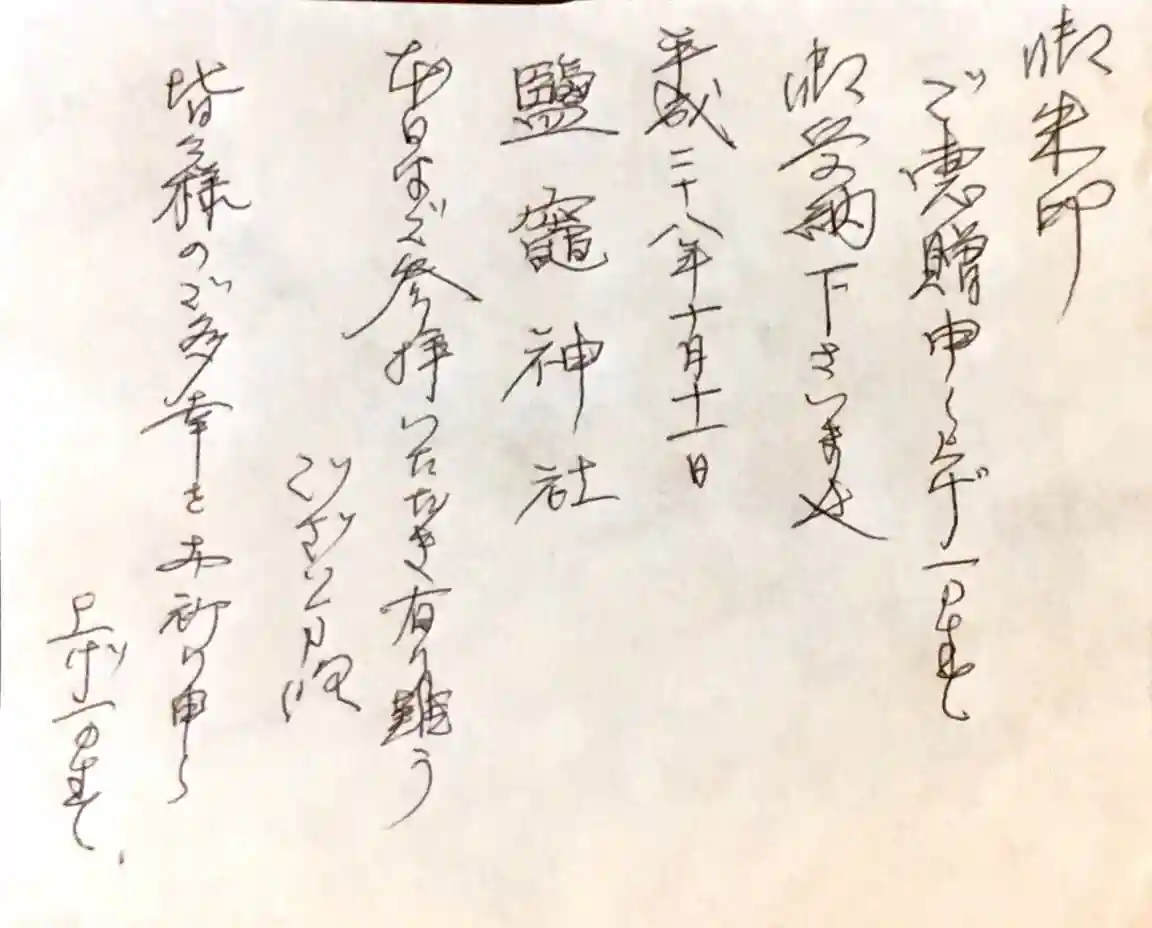 御朱印
ご恵贈申し上げます
御受納下さいませ
平成二十八年十月十一日
鹽竈神社
本日はご参拝いただき有り難う
ございました
皆々様のご多幸をお祈り申し
上げます。